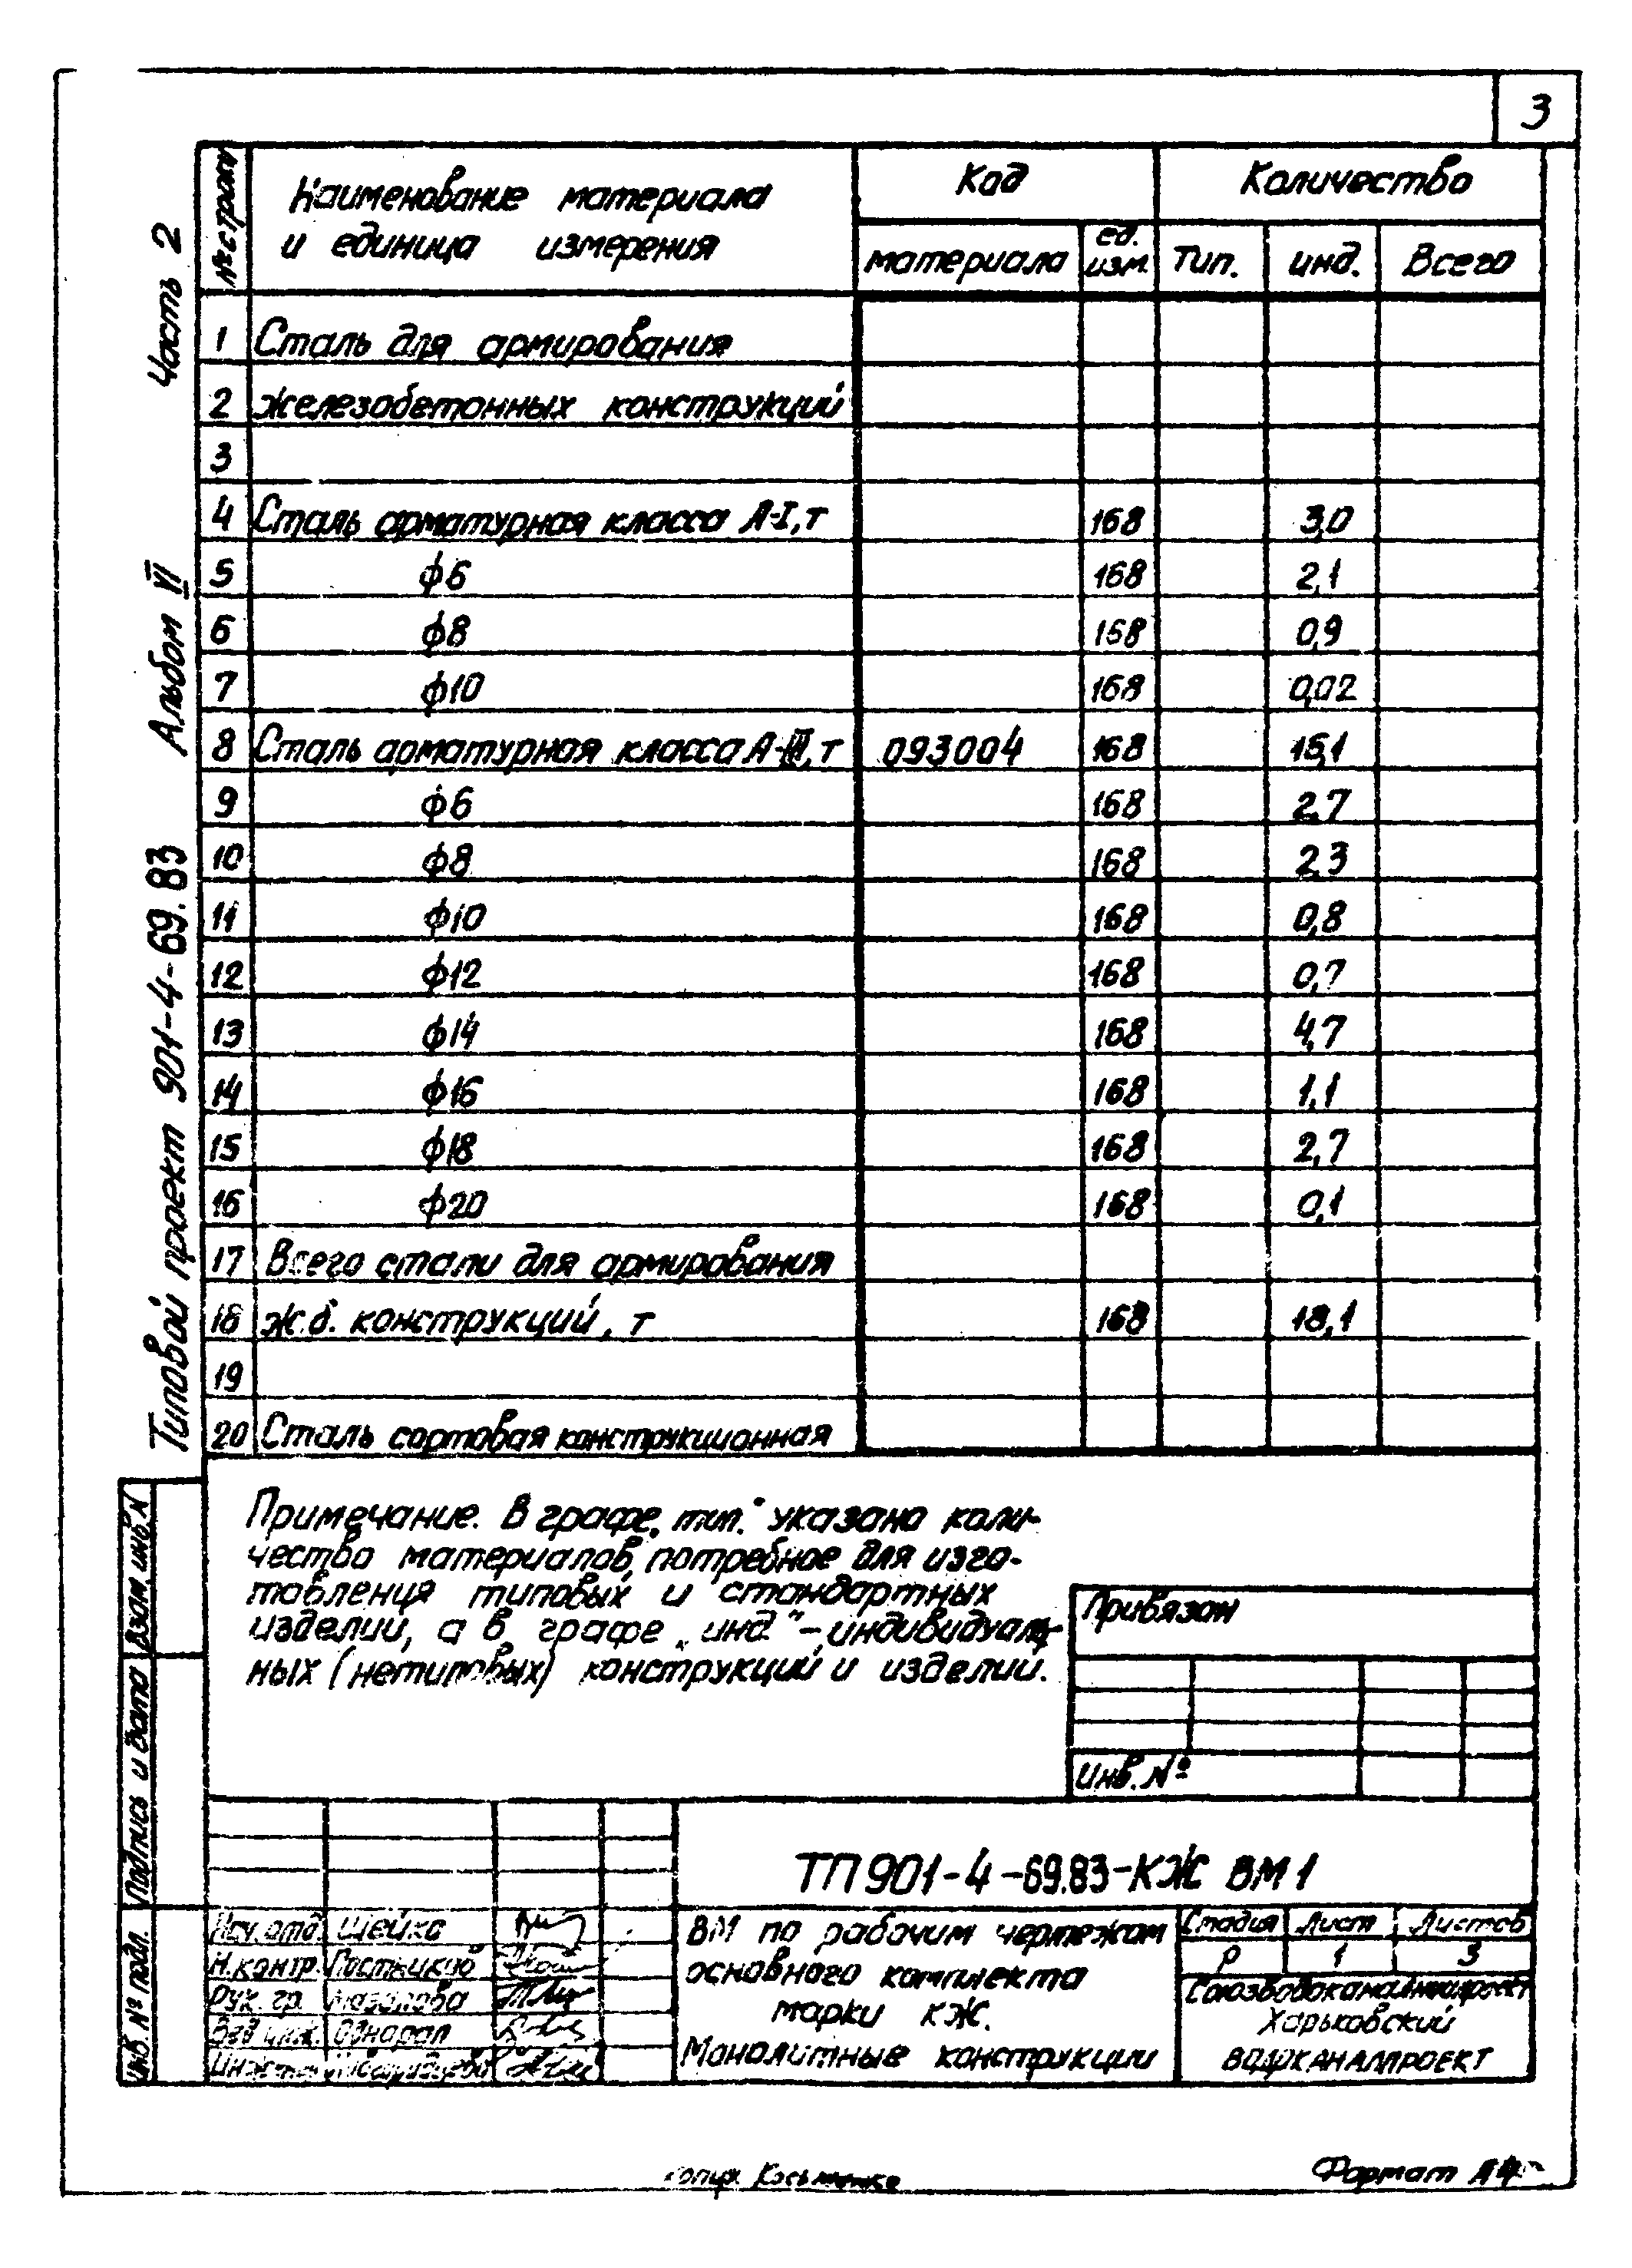 3
Типовой проект 901-4-69.83 Альбом VI Часть 2
№ строки
Наименование материала
и единица измерения
Код
материала
ед. изм.
Количество
Тип. инд. Всего
1 Сталь для армирования
2 железобетонных конструкций
3
4 Сталь арматурная класса А-I, т 168 3,0
5 ф6 168 2,1
6 ф8 168 0,9
7 ф10 168 0,02
8 Сталь арматурная класса А-III, т 093004 168 15,1
9 ф6 168 2,7
10 ф8 168 2,3
11 ф10 168 0,8
12 ф12 168 0,7
13 ф14 168 4,7
14 ф16 168 1,1
15 ф18 168 2,7
16 ф20 168 0,1
17 Всего стали для армирования
18 ж.б. конструкций, т 168 18,1
19
20 Сталь сортовая конструкционная
Примечание. В графе „тип.“ указано коли-
чество материалов, потребное для изго-
товления типовых и стандартных
изделий, а в графе „инд.“ – индивидуаль-
ных (нетиповых) конструкций и изделий.
Привязан
Инв. №
Взам. инв. №
Подпись и дата
Инв. № подл.
ТП 901-4-69.83-КЖ ВМ 1
Нач. отд. Шейко
Н. контр.
Рук. гр.
Вед. инж.
ВМ по рабочим чертежам
основного комплекта
марки КЖ.
Монолитные конструкции
Стадия Лист Листов
Р 1 3
Союзводоканалниипроект
Харьковский
ВОДОКАНАЛПРОЕКТ
Формат А4